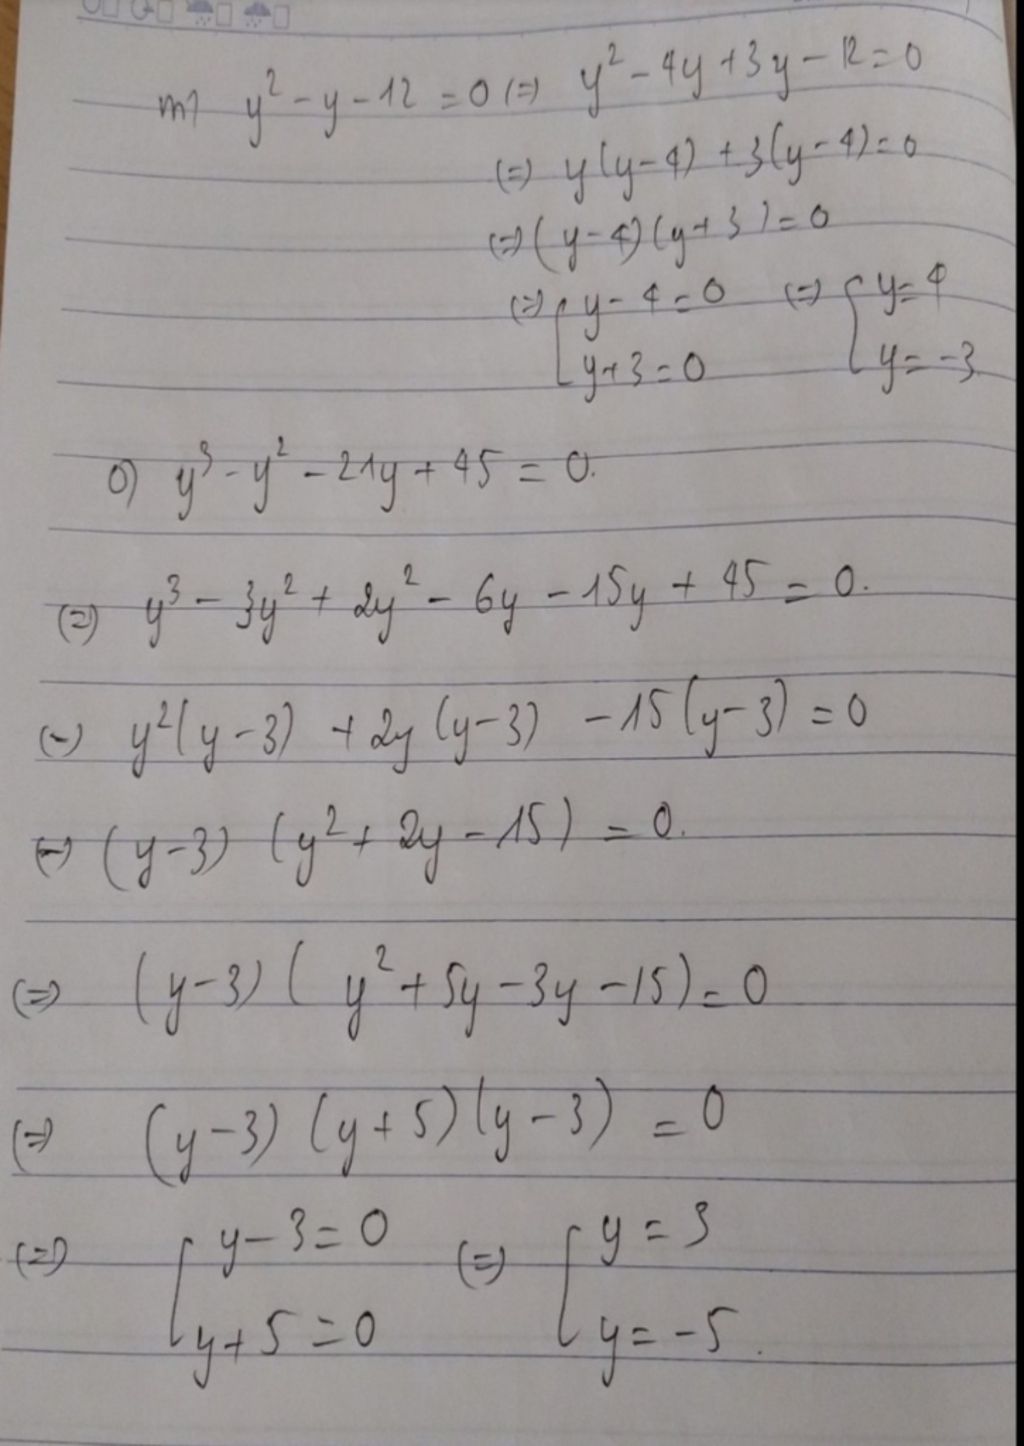 m) y² - y - 12 = 0 (=) y² - 4y + 3y - 12 = 0
(=) y(y - 4) + 3(y - 4) = 0
(=) (y - 4)(y + 3) = 0
(=) [ y - 4 = 0 (=) [ y = 4
y + 3 = 0 y = -3
o) y³ - y² - 21y + 45 = 0.
(=) y³ - 3y² + 2y² - 6y - 15y + 45 = 0.
(=) y²(y - 3) + 2y(y - 3) - 15(y - 3) = 0
(=) (y - 3)(y² + 2y - 15) = 0.
(=) (y - 3)(y² + 5y - 3y - 15) = 0
(=) (y - 3)(y + 5)(y - 3) = 0
(=) [ y - 3 = 0 (=) [ y = 3
y + 5 = 0 y = -5.